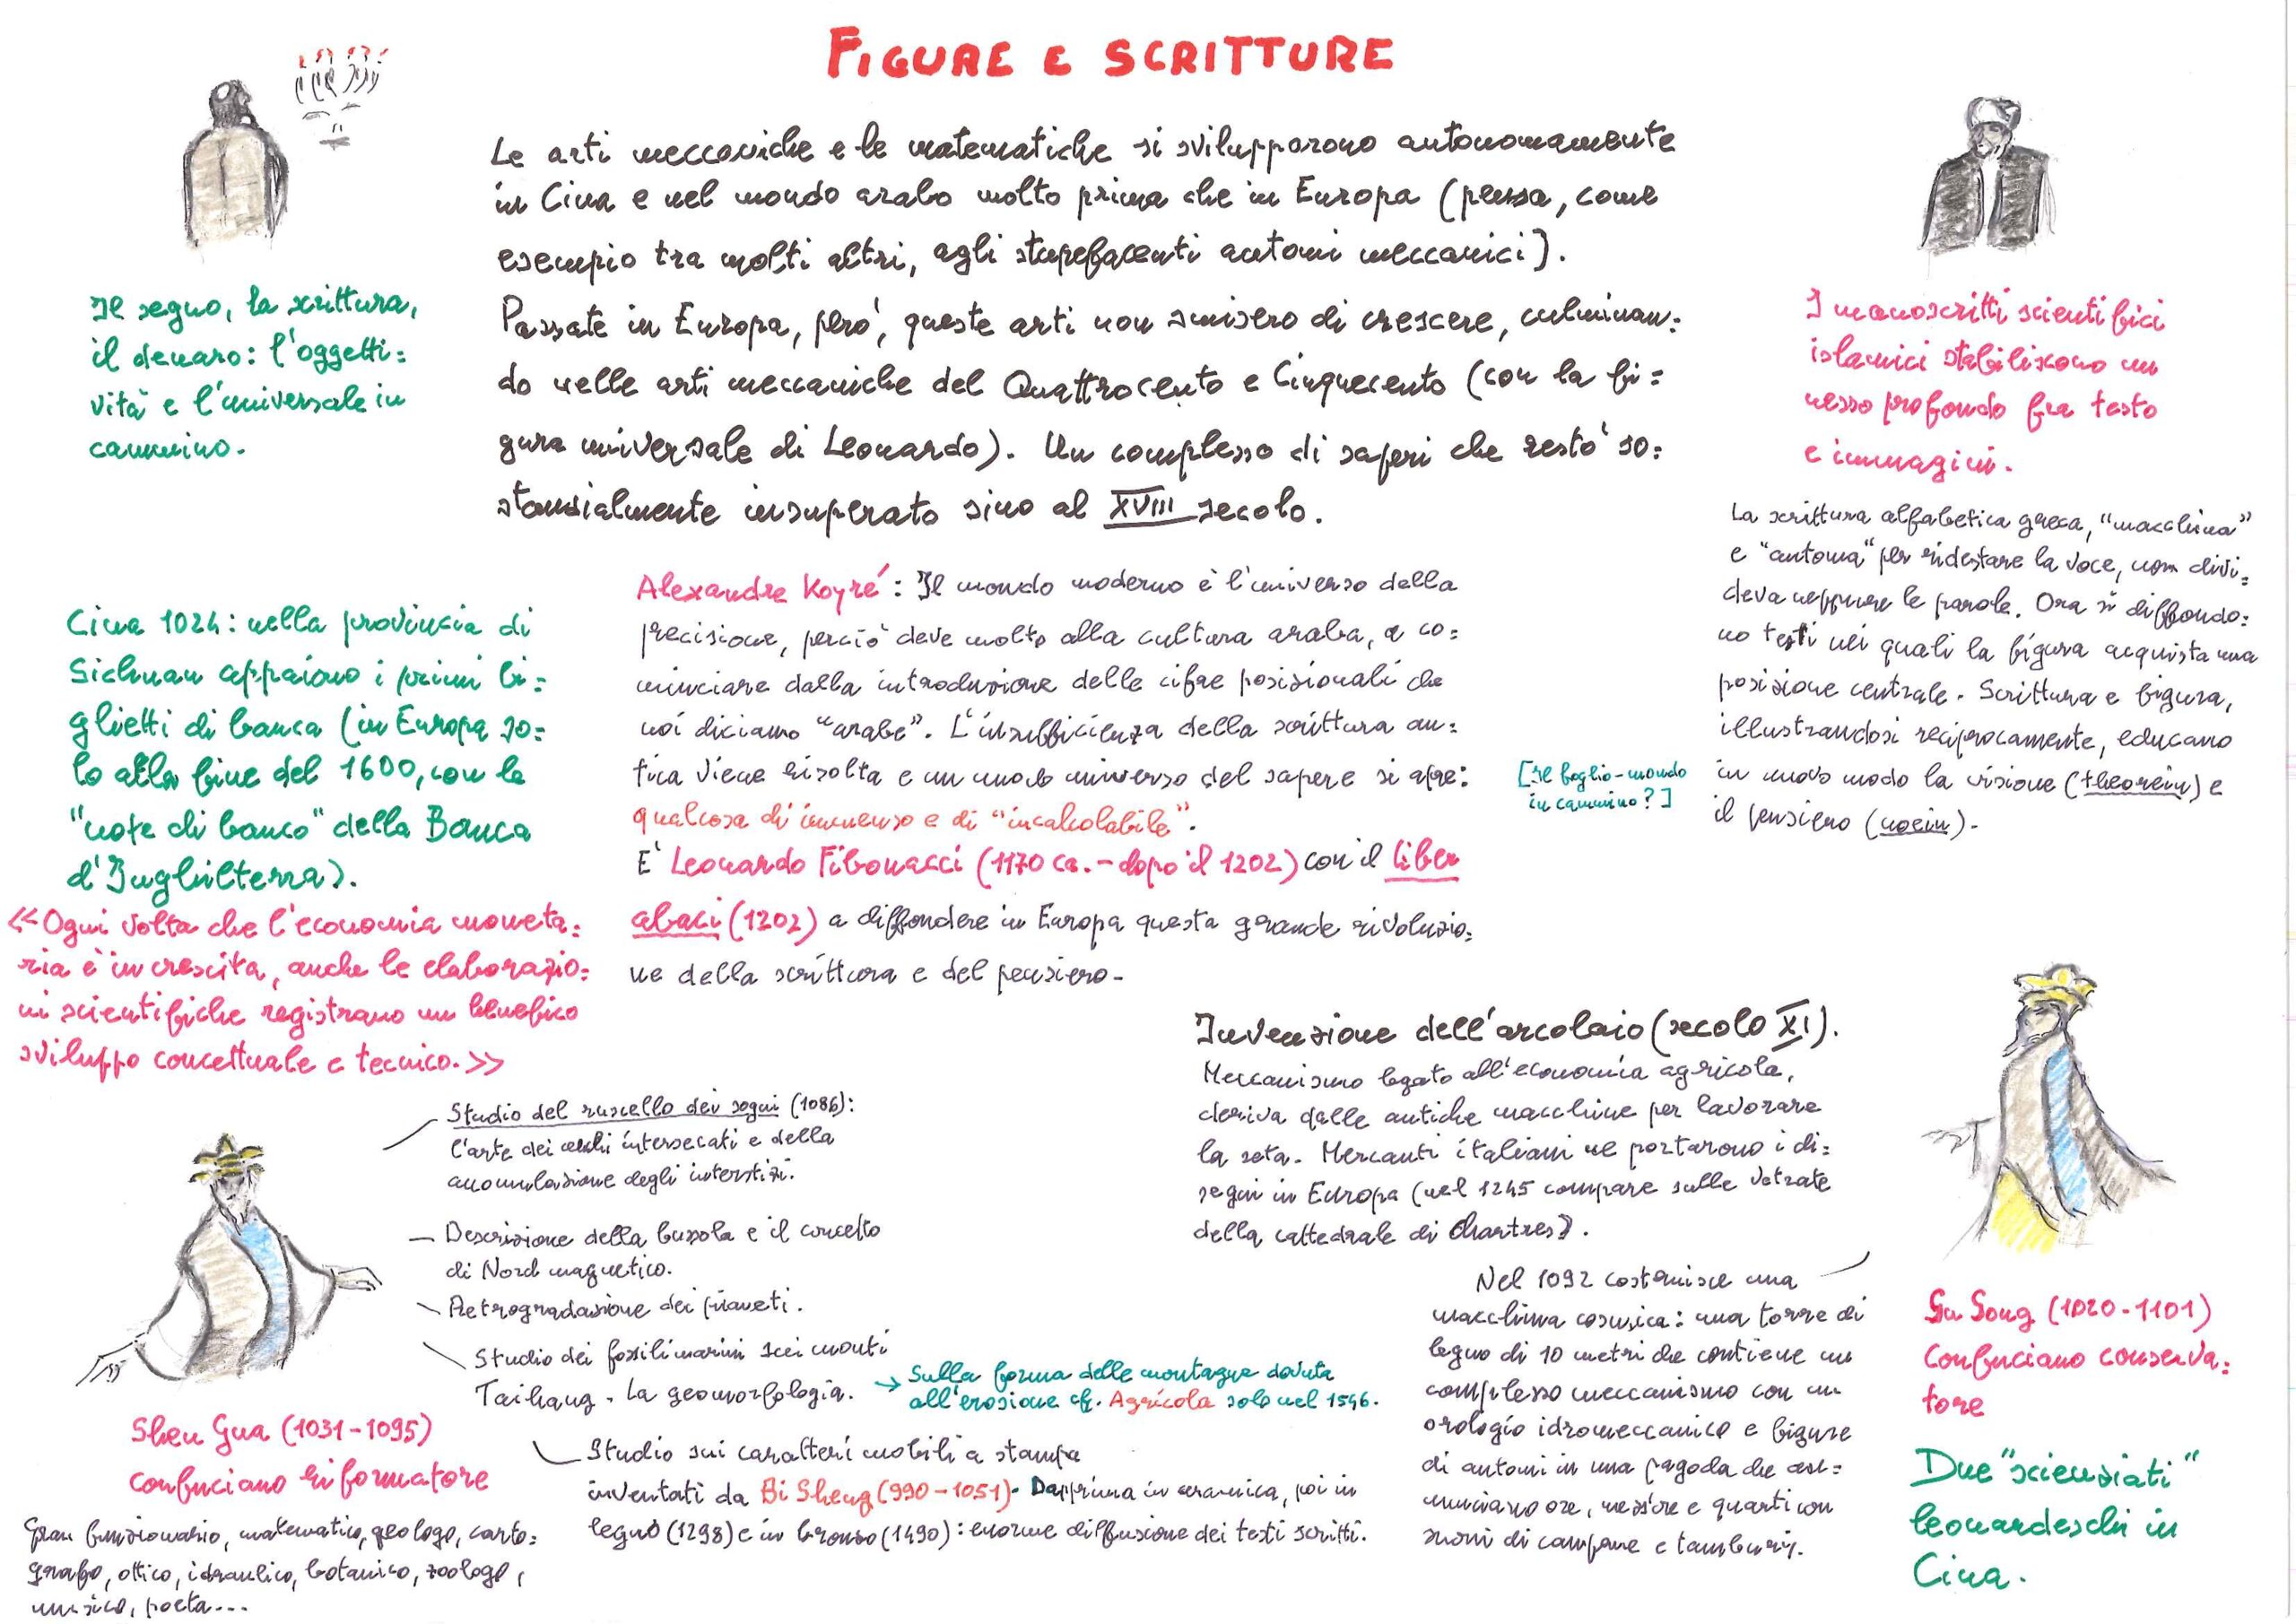 FIGURE E SCRITTURE
Le arti meccaniche e le matematiche si svilupparono autonomamente
in Cina e nel mondo arabo molto prima che in Europa (pensa, come
esempio tra molti altri, agli stupefacenti automi meccanici).
Passate in Europa, però, queste arti non smisero di crescere, culminan:
do nelle arti meccaniche del Quattrocento e Cinquecento (con la fi=
gura universale di Leonardo). Un complesso di saperi che restò so:
stanzialmente insuperato sino al XVIII secolo.
Il segno, la scrittura,
il denaro: l'oggetti:
vità e l'universale in
cammino.
I manoscritti scientifici
islamici stabiliscono un
nesso profondo fra testo
e immagini.
La scrittura alfabetica greca, "macchina"
e "automa" per ridestare la voce, non divi=
deva neppure le parole. Ora si diffondo:
no testi nei quali la figura acquista una
posizione centrale. Scrittura e figura,
illustrandosi reciprocamente, educano
in nuovo modo la visione (theorein) e
il pensiero (noein).
[Il foglio-mondo
in cammino?]
Cina 1024: nella provincia di
Sichuan appaiono i primi bi=
glietti di banca (in Europa so=
lo alla fine del 1600, con le
"note di banco" della Banca
d'Inghilterra).
<<Ogni volta che l'economia moneta:
ria è in crescita, anche le elaborazio=
ni scientifiche registrano un benefico
sviluppo concettuale e tecnico.>>
Alexandre Koyré: Il mondo moderno è l'universo della
precisione, perciò deve molto alla cultura araba, a co=
minciare dalla introduzione delle cifre posizionali che
noi diciamo "arabe". L'insufficienza della scrittura an=
tica viene risolta e un nuovo universo del sapere si apre:
qualcosa di immenso e di "incalcolabile".
E' Leonardo Fibonacci (1170 ca. - dopo il 1202) con il liber
abaci (1202) a diffondere in Europa questa grande rivoluzio=
ne della scrittura e del pensiero.
Invenzione dell'arcolaio (secolo XI).
Meccanismo legato all'economia agricola,
deriva dalle antiche macchine per lavorare
la seta. Mercanti italiani ne portarono i di=
segni in Europa (nel 1245 compare sulle vetrate
della cattedrale di Chartres).
Nel 1092 costruisce una
macchina cosmica: una torre di
legno di 10 metri che contiene un
complesso meccanismo con un
orologio idromeccanico e figure
di automi in una pagoda che an=
nunciano ore, mezz'ore e quarti con
suoni di campane e tamburi.
Su Song (1020-1101)
Confuciano conserva:
tore
Due "scienziati"
leonardeschi in
Cina.
Studio del ruscello dei sogni (1086):
l'arte dei cerchi intersecati e della
accumulazione degli interstizi.
Descrizione della bussola e il concetto
di Nord magnetico.
Retrogradazione dei pianeti.
Studio dei fossili marini sui monti
Taihang. La geomorfologia.
→ Sulla forma delle montagne dovuta
all'erosione cfr. Agricola solo nel 1546.
Studio sui caratteri mobili a stampa
inventati da Bi Sheng (990-1051). Dapprima in ceramica, poi in
legno (1298) e in bronzo (1490): enorme diffusione dei testi scritti.
Shen Gua (1031-1095)
confuciano riformatore
Gran funzionario, matematico, geologo, carto=
grafo, ottico, idraulico, botanico, zoologo,
musico, poeta...